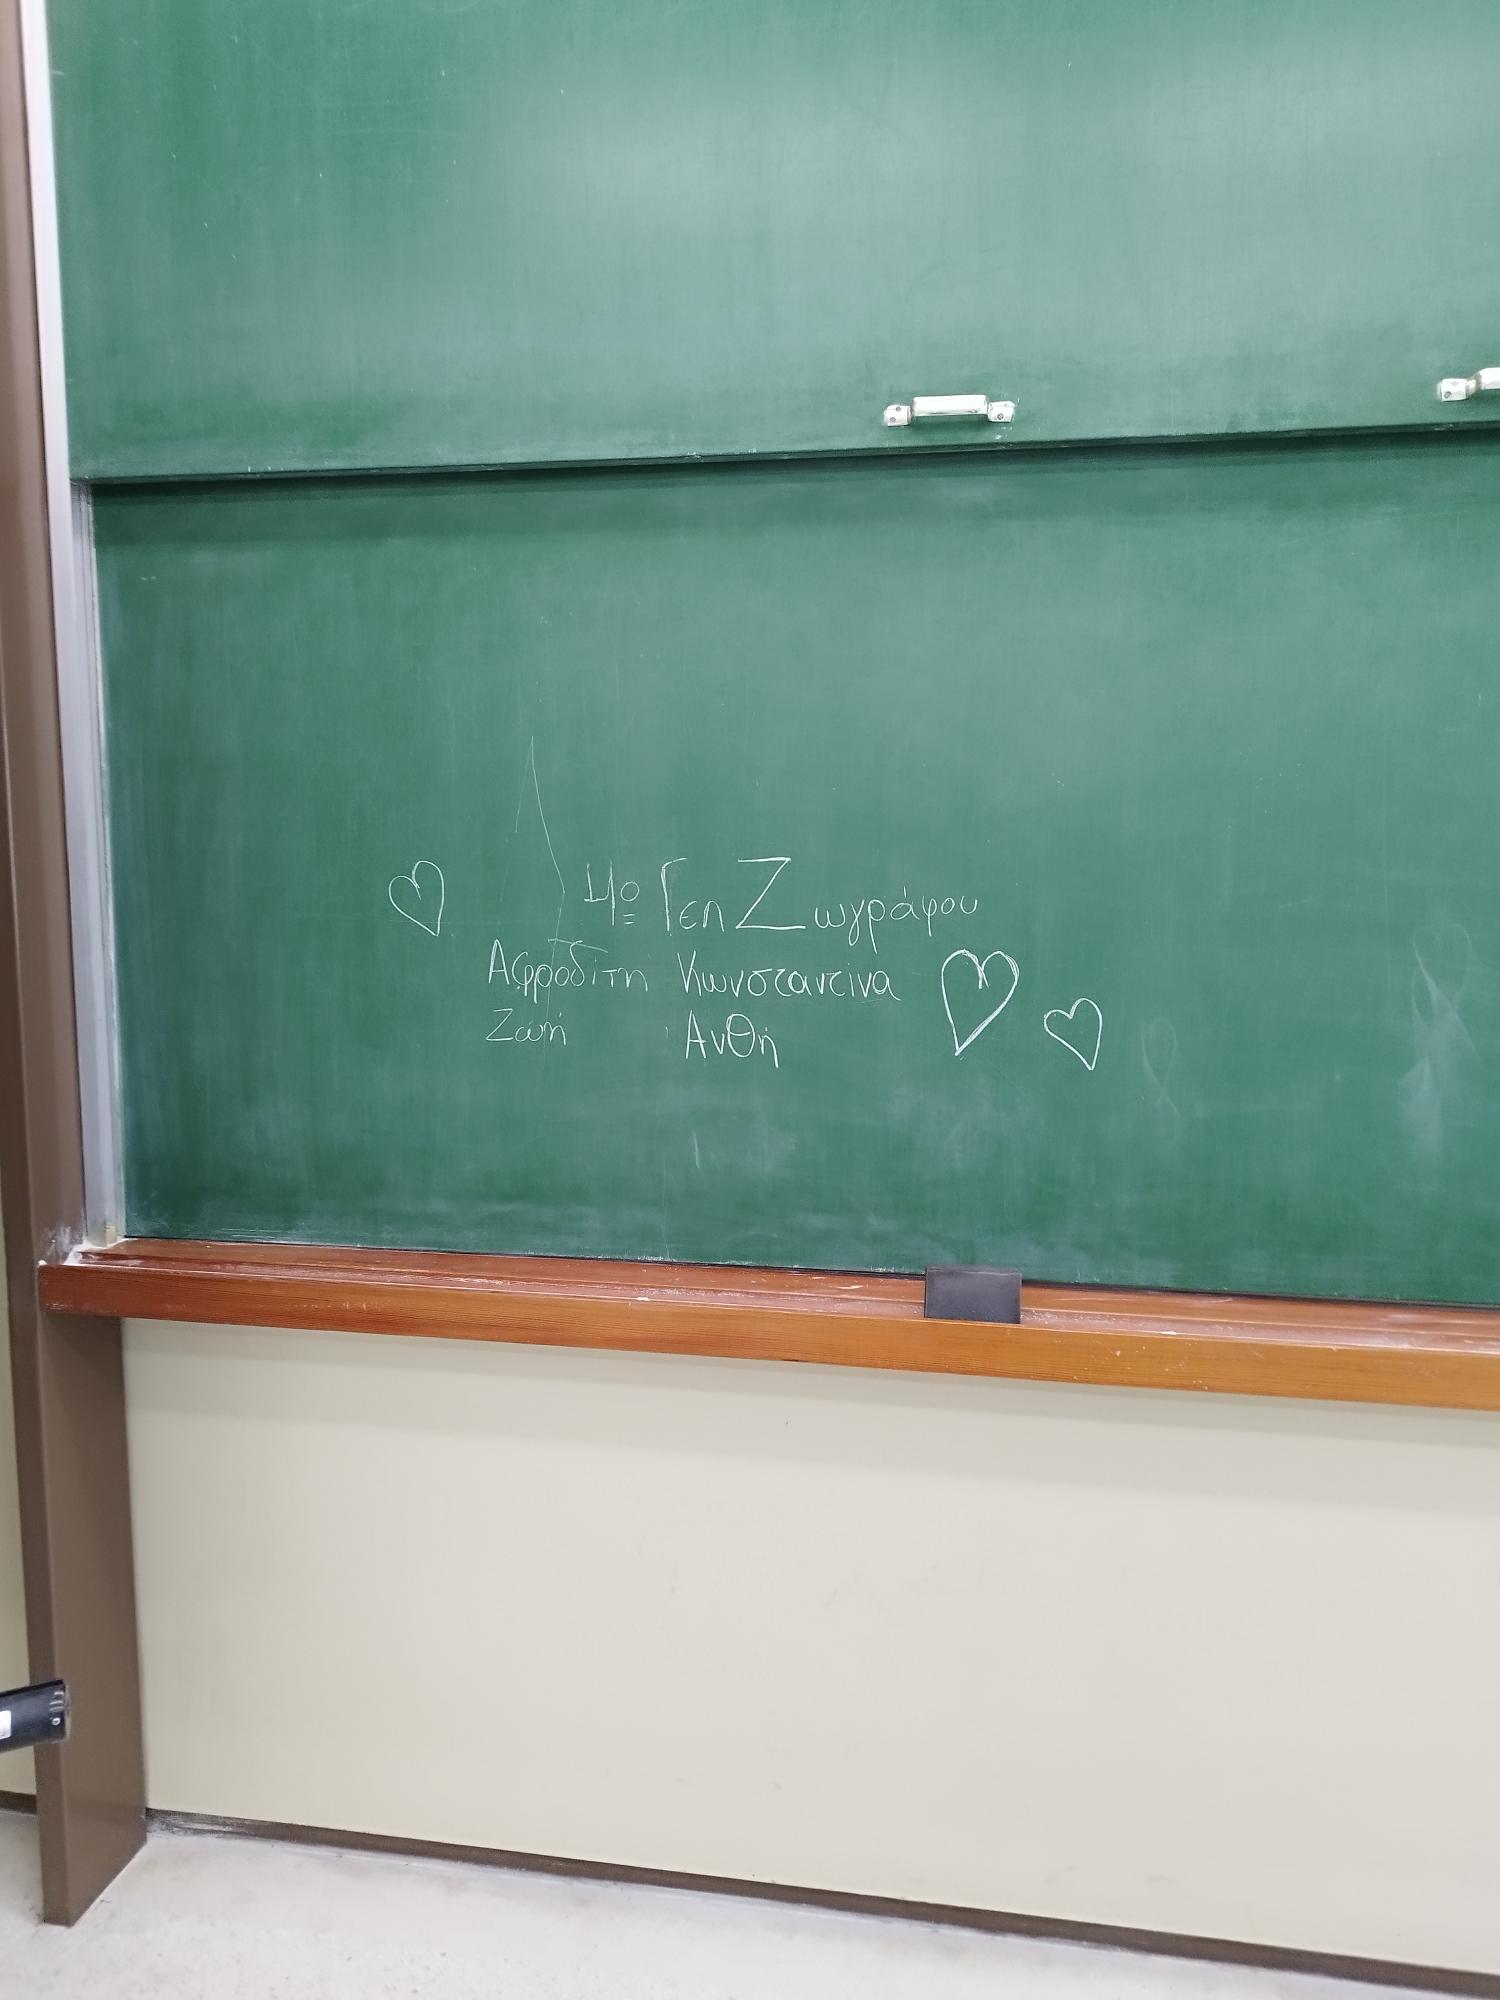 4ο Γελ Ζωγράφου
Αφροδίτη Κωνσταντίνα
Ζωή Ανθή